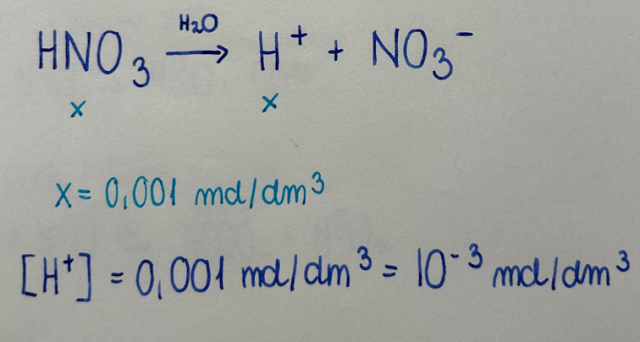 H₂O
HNO₃ ⟶ H⁺ + NO₃⁻
x x
x = 0,001 mol/dm³
[H⁺] = 0,001 mol/dm³ = 10⁻³ mol/dm³